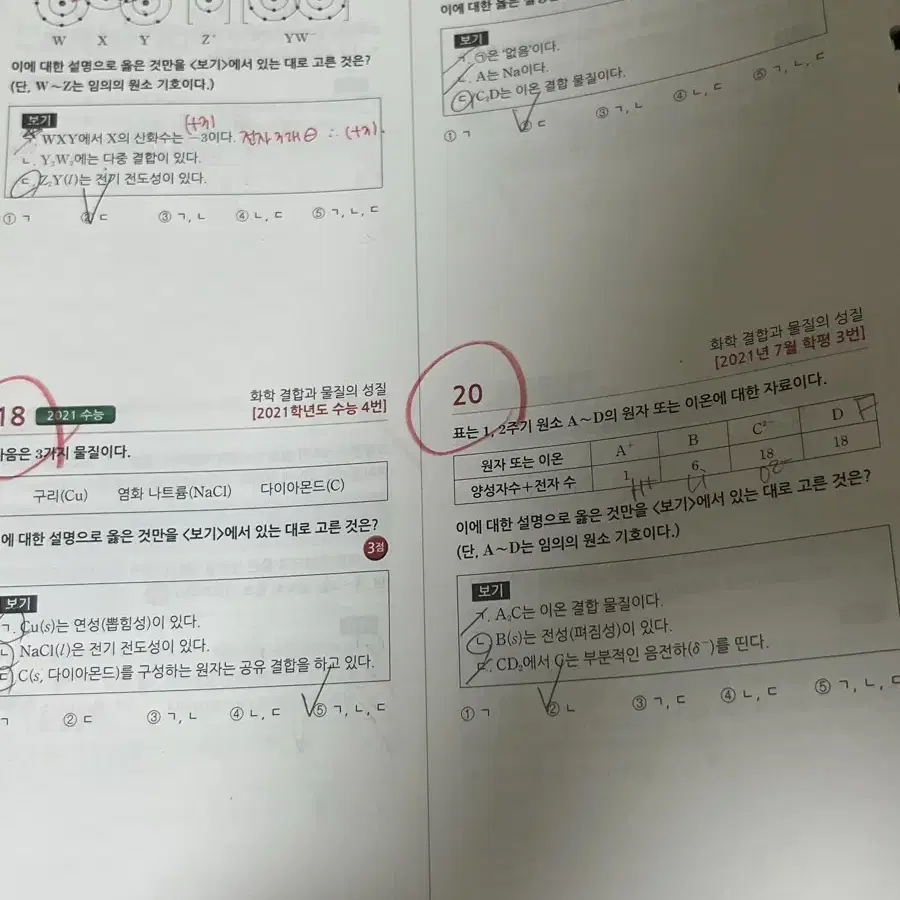 W X Y Z⁺ YW⁻
이에 대한 설명으로 옳은 것만을 <보기>에서 있는 대로 고른 것은?
(단, W~Z는 임의의 원소 기호이다.)
보기
(+3)
ㄱ. WXY에서 X의 산화수는 −3이다.
∴ (+3).
ㄴ. Y₂W₂에는 다중 결합이 있다.
ㄷ. Z₂Y(l)는 전기 전도성이 있다.
① ㄱ ② ㄷ ③ ㄱ, ㄴ ④ ㄴ, ㄷ ⑤ ㄱ, ㄴ, ㄷ
18 2021 수능
화학 결합과 물질의 성질
[2021학년도 수능 4번]
음은 3가지 물질이다.
구리(Cu) 염화 나트륨(NaCl) 다이아몬드(C)
에 대한 설명으로 옳은 것만을 <보기>에서 있는 대로 고른 것은?
3점
보기
ㄱ. Cu(s)는 연성(뽑힘성)이 있다.
ㄴ. NaCl(l)은 전기 전도성이 있다.
ㄷ. C(s, 다이아몬드)를 구성하는 원자는 공유 결합을 하고 있다.
ㄱ ② ㄷ ③ ㄱ, ㄴ ④ ㄴ, ㄷ ⑤ ㄱ, ㄴ, ㄷ
이에 대한 옳은
보기
ㄱ. ㉠은 '없음'이다.
ㄴ. A는 Na이다.
ㄷ. C₂D는 이온 결합 물질이다.
① ㄱ ② ㄷ ③ ㄱ, ㄴ ④ ㄴ, ㄷ ⑤ ㄱ, ㄴ, ㄷ
화학 결합과 물질의 성질
[2021년 7월 학평 3번]
20
표는 1, 2주기 원소 A~D의 원자 또는 이온에 대한 자료이다.
원자 또는 이온 A⁺ B C²⁻ D F
양성자수+전자 수 1 6 18 18
H+ Li O²⁻
이에 대한 설명으로 옳은 것만을 <보기>에서 있는 대로 고른 것은?
(단, A~D는 임의의 원소 기호이다.)
보기
ㄱ. A₂C는 이온 결합 물질이다.
ㄴ. B(s)는 전성(펴짐성)이 있다.
ㄷ. CD₂에서 C는 부분적인 음전하(δ⁻)를 띤다.
① ㄱ ② ㄴ ③ ㄱ, ㄷ ④ ㄴ, ㄷ ⑤ ㄱ, ㄴ, ㄷ